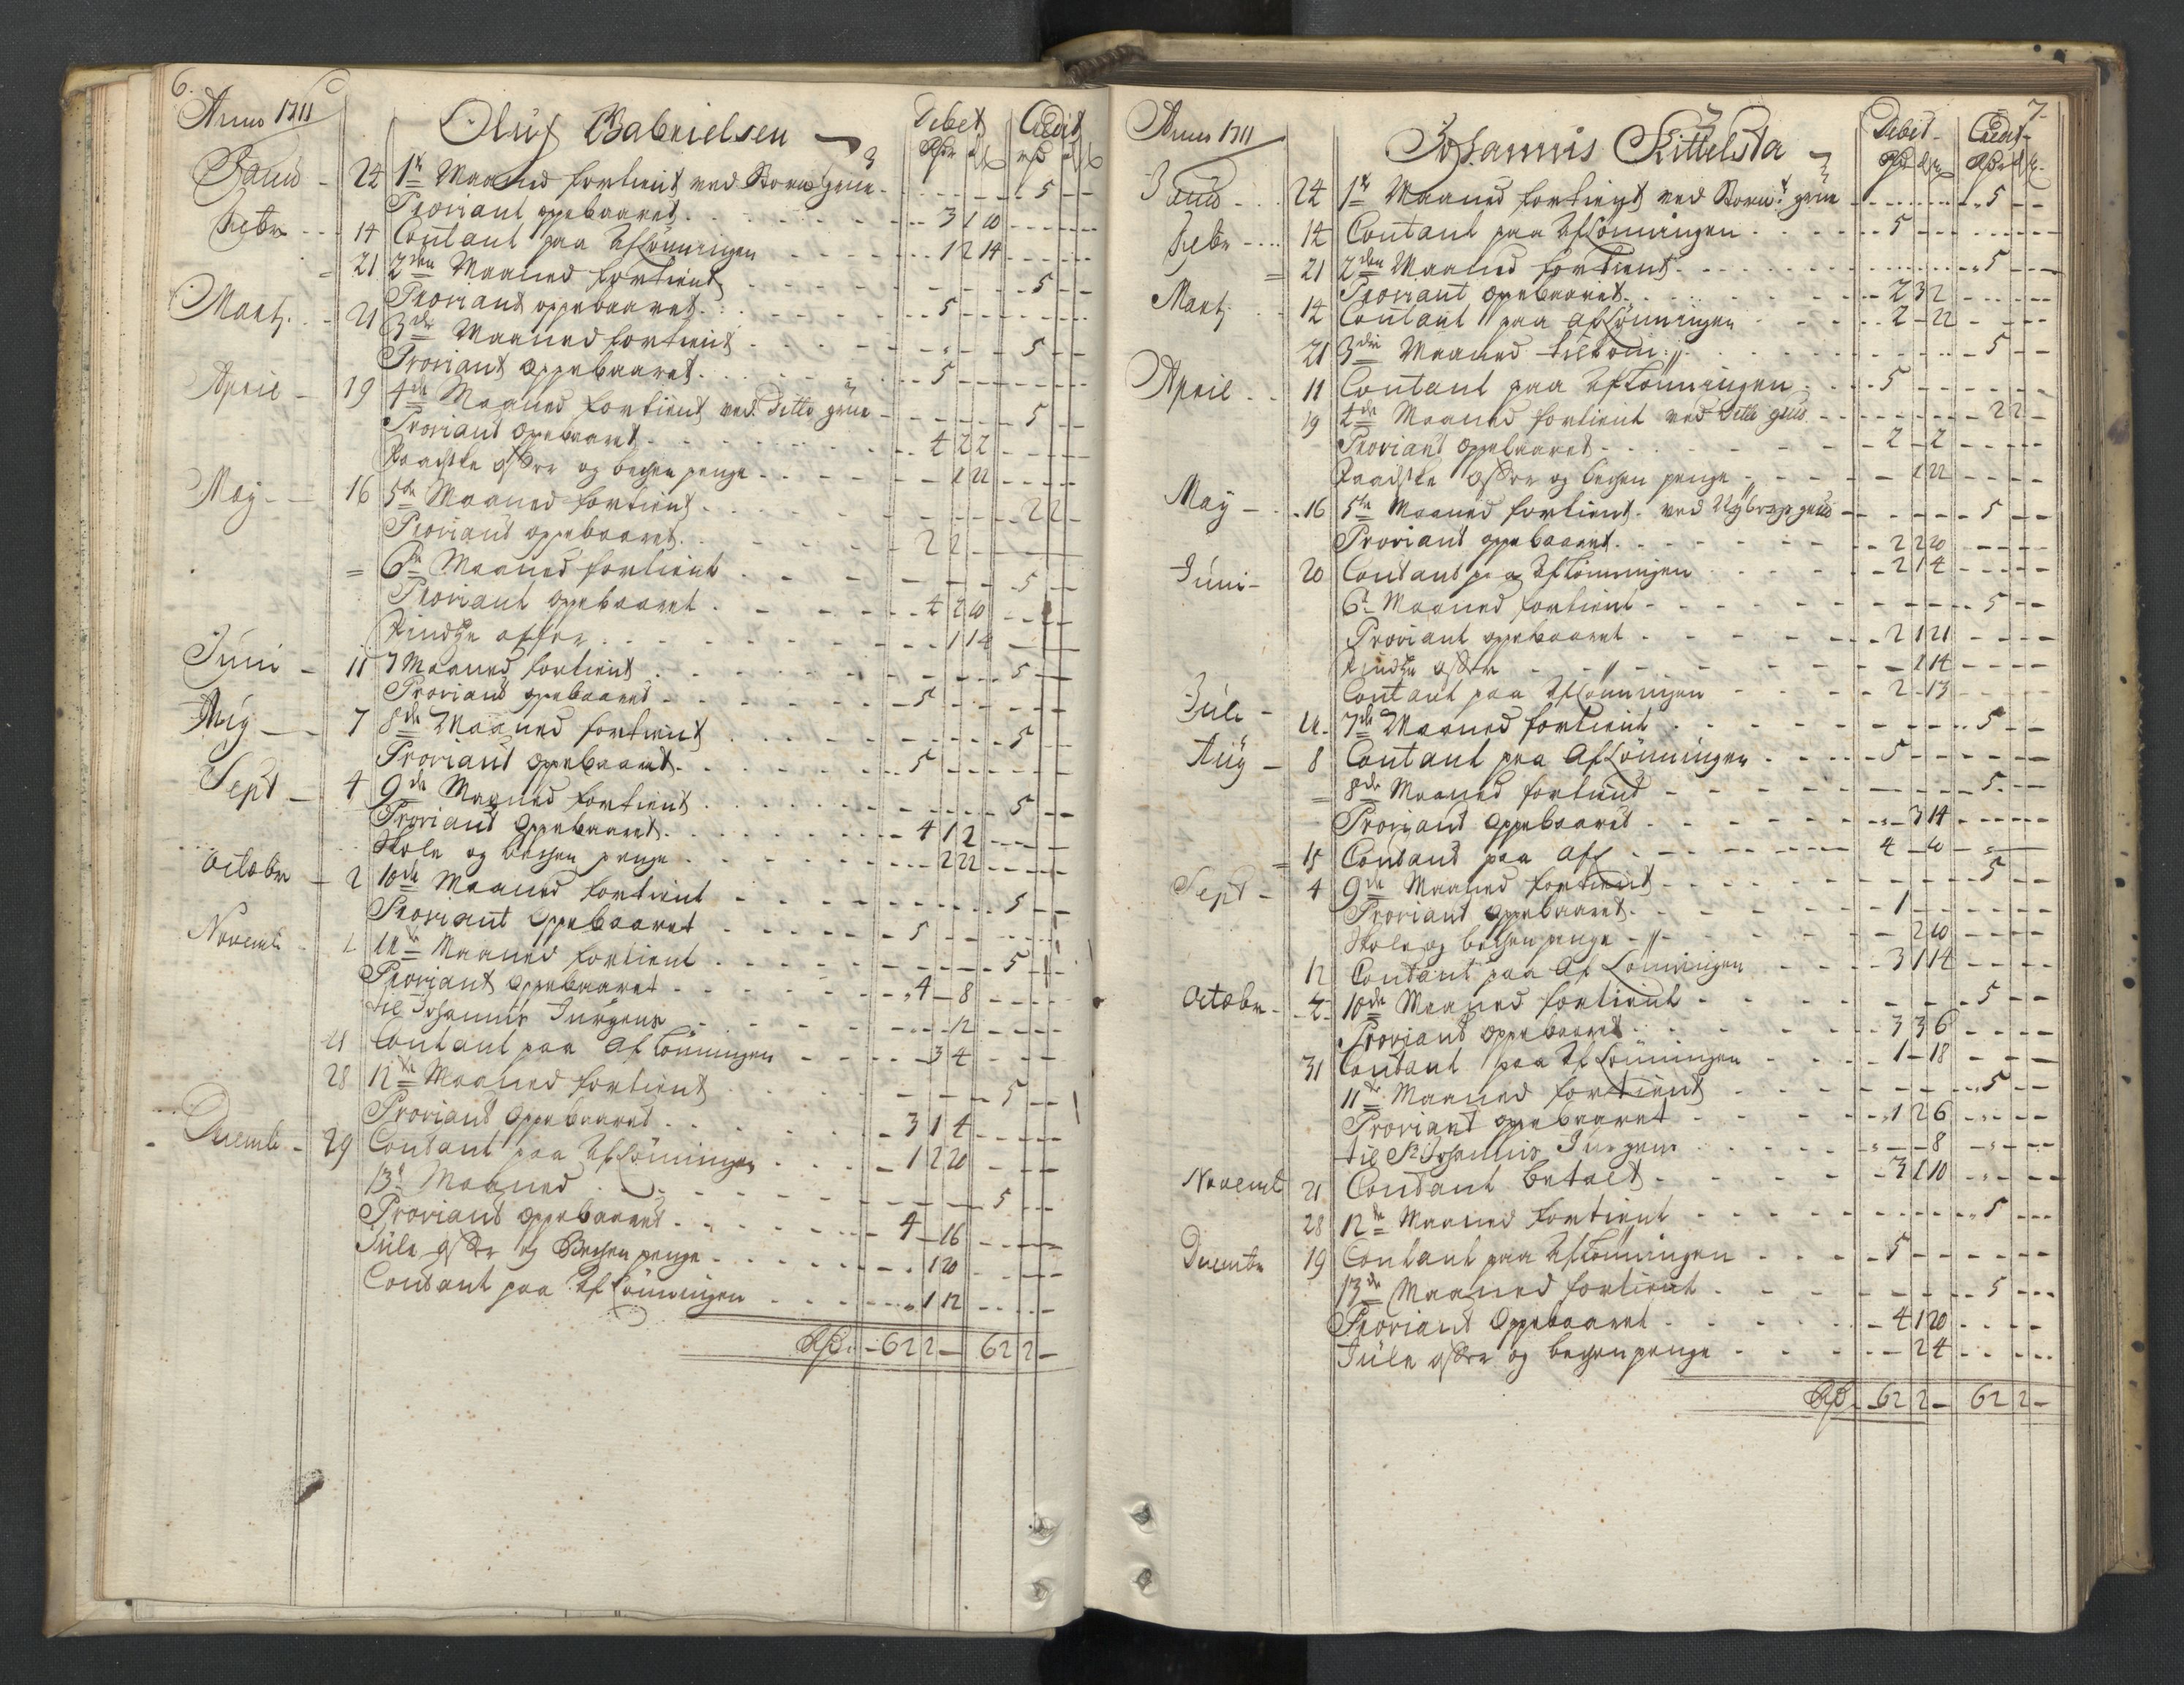 6.
Anno 1711
Oluf Gabrielsen
Debet Credit
Janu - 24 1te Maaned fortient ved grue - 5 - -
Proviant oppebaaret 3 1 10
Febr - 14 Contant paa Aflönningen 1 2 14
= 21 2den Maaned fortient 5 - -
Proviant oppebaaret 5 - -
Martj - 21 3de Maaned fortient 5 - -
Proviant oppebaaret 5 - -
April - 19 4de Maaned fortient ved Ditto grue 5 - -
Proviant oppebaaret 4 2 2
Paaschke offer og bechen penge 1 22
May - 16 5te Maaned fortient 2 2 -
Proviant oppebaaret 2 2 -
= 6te Maaned fortient 5 - -
Proviant oppebaaret 4 2 10
Pindtze offer 1 14
Juni - 11 7 Maaned fortient 5 - -
Proviant oppebaaret 5 - -
Aug - 7 8de Maaned fortient 5 - -
Proviant oppebaaret 5 - -
Sept - 4 9de Maaned fortient 5 - -
Proviant oppebaaret 4 1 2
Skole og bechen penge 2 22
Octobr - 2 10de Maaned fortient 5 - -
Proviant oppebaaret 5 - -
Novemb - 1 11te Maaned fortient 5 - -
Proviant oppebaaret 4 - 8
til Johannis Jurgens 12
21 Contant paa Aflönningen 3 4
28 12te Maaned fortient 5 - -
Proviant oppebaaret 3 1 4
Decemb - 29 Contant paa Aflönningen 1 2 20
13de Maaned 5 - -
Proviant oppebaaret 4 - 16
Jule offer og Bechen penge 1 20
Contant paa Aflönningen 1 12
Rdr - 62 2 - 62 2 -
7
Anno 1711
Johannis Kittelsta
Debit Credit
Janu - 24 1te Maaned fortient ved grue 5 - -
Febr - 14 Contant paa Aflönningen 5 - -
= 21 2den Maaned fortient 5 - -
Proviant oppebaaret 2 3 2
Martj 14 Contant paa Aflönningen 2 - 22
21 3die Maaned 5 - -
April - 11 Contant paa Aflönningen 5 - -
19 4de Maaned fortient ved Ditto grue 2 2 -
Proviant oppebaaret 2 - 2
Paaschke offer og bechen penge 1 22
May - 16 5te Maaned fortient ved grue 5 - -
Proviant oppebaaret 2 2 20
Juni - 20 Contant paa Aflönningen 2 1 4
6te Maaned fortient 5 - -
Proviant oppebaaret 2 1 21
Pindtze offer - 1 14
Contant paa Aflönningen 2 - 13
Juli - 11 7de Maaned fortient 5 - -
Aug - 8 Contant paa Aflönningen 5 - -
= 8de Maaned fortient 5 - -
Proviant oppebaaret - 3 14
= 15 Contant paa Afl 4 - 10
Sept - 4 9de Maaned fortient 5 - -
Proviant oppebaaret 1 - -
Skole og bechen penge - 2 10
12 Contant paa Aflönningen 3 1 14
Octobr - 2 10de Maaned fortient 5 - -
Proviant oppebaaret 3 3 6
31 Contant paa Aflönningen 1 - 18
11te Maaned fortient 5 - -
Proviant oppebaaret 1 2 6
til Sr Johannis Jurgens - - 8
Novemb 21 Contant betalt 3 1 10
28 12te Maaned fortient 5 - -
Decembr 19 Contant paa Aflönningen 5 - -
13de Maaned fortient 5 - -
Proviant oppebaaret 4 1 20
Jule offer og bechen penge - 2 4
Rdr - 62 2 - 62 2 -